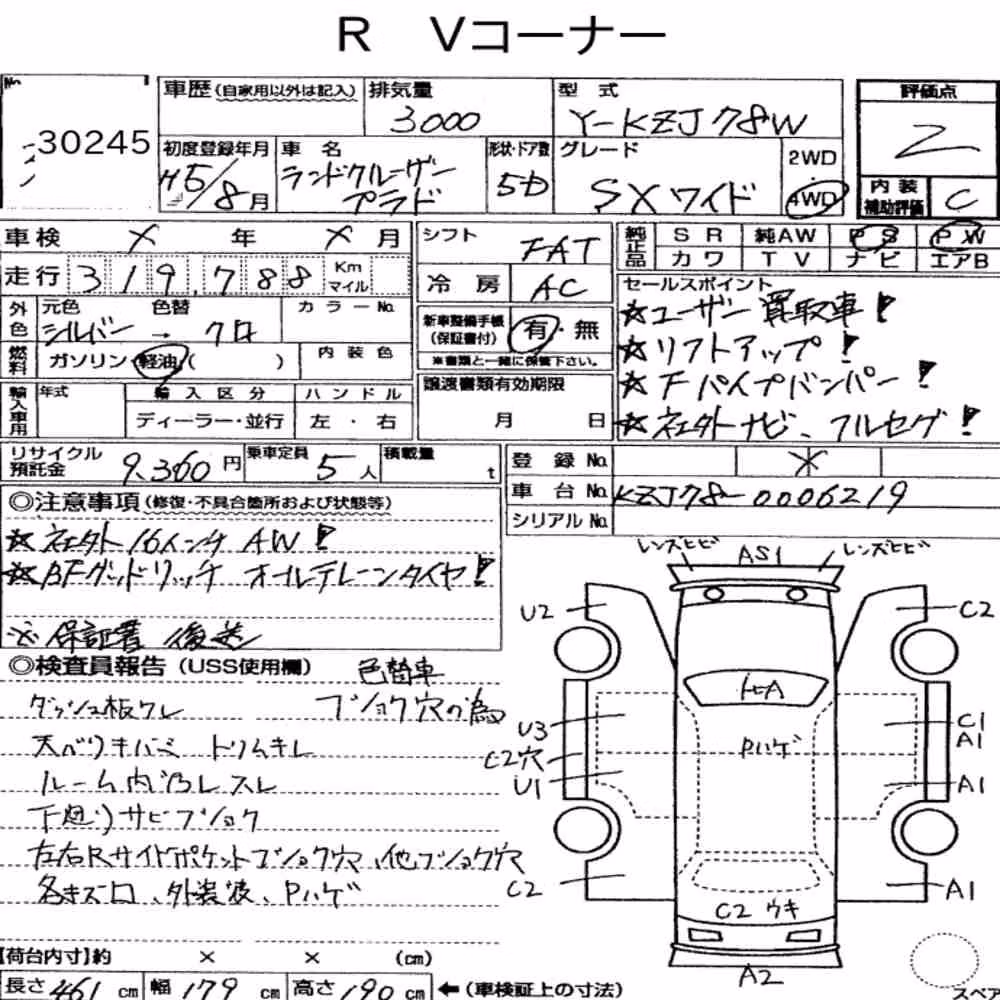 R Vコーナー
No.
30245
車歴(自家用以外は記入)
排気量 3000
型式 Y-KZJ78W
評価点 2
初度登録年月 H5/8月
車名 ランドクルーザー プラド
形状・ドア数 5D
グレード SXワイド
2WD
4WD
内装補助評価 C
車検 × 年 × 月
シフト FAT
純正品 SR 純AW PS PW
カワ TV ナビ エアB
走行 319,788 Km マイル
冷房 AC
セールスポイント
☆ユーザー買取車!
☆リフトアップ!
☆Fパイプバンパー!
☆社外ナビ、フルセグ!
外色 元色 シルバー → 色替 クロ
カラーNo.
新車整備手帳(保証書付) 有・無
※書類と一緒に保管下さい。
燃料 ガソリン 軽油 ( )
内装色
輸入車用 年式 輸入区分 ハンドル
ディーラー・並行 左・右
譲渡書類有効期限
月 日
リサイクル預託金 9,360円
乗車定員 5人
積載量 t
登録No. ×
車台No. KZJ78-0006219
シリアルNo.
◎注意事項(修復・不具合箇所および状態等)
☆社外16インチ AW!
☆BFグッドリッチ オールテレーンタイヤ!
※保証書 後送
◎検査員報告(USS使用欄) 色替車
ダッシュ板クレ フショク穴の為
天ベリキバミ トリムキレ
ルーム内汚レスレ
下廻りサビフショク
左右Rサイドポケットフショク穴、他フショク穴
各キズ凹、外装張、Pハゲ
レンズヒビ AS1 レンズヒビ
U2 C2
トビA
U3 C1
A1
Pハゲ
C2穴
U1 A1
C2 A1
C2 ウキ
A2
スペア
【荷台内寸】約 × × (cm)
長さ461cm 幅179cm 高さ190cm ←(車検証上の寸法)